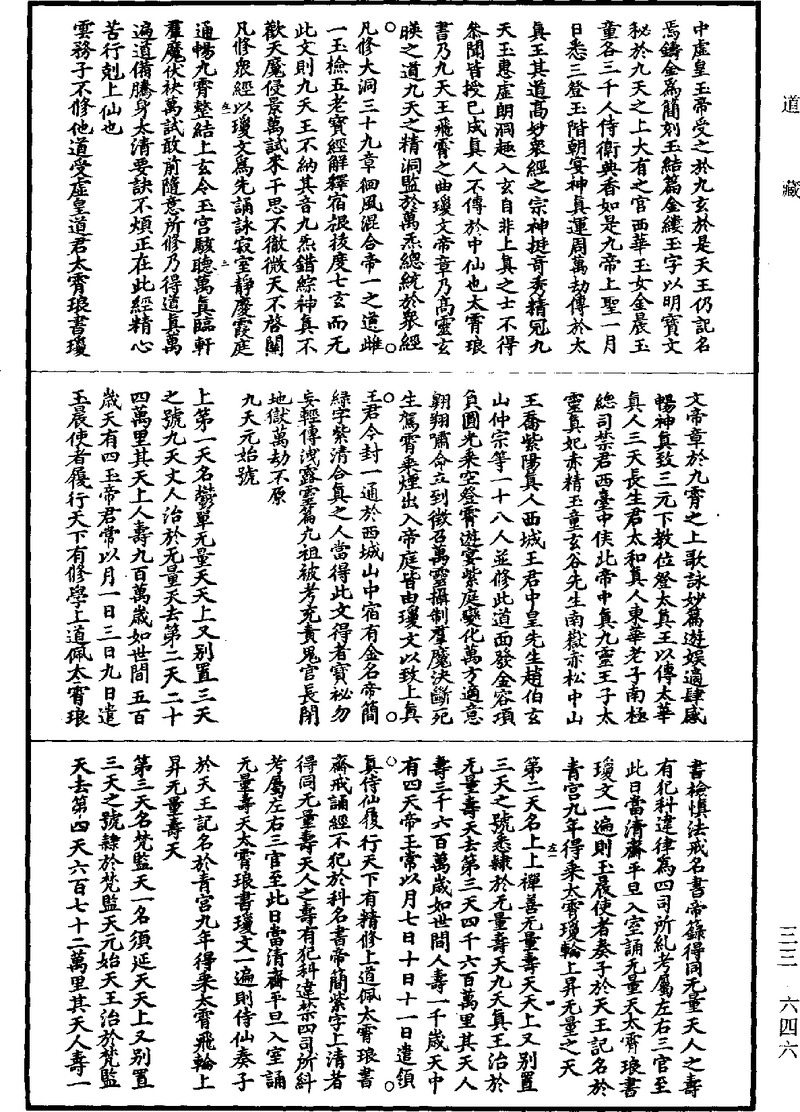 道藏
三三 六四六
中虛皇玉帝受之於九玄於是天王仍記名
焉鑄金為簡刻玉結篇金縷玉字以明寶文
秘於九天之上大有之宮西華玉女金晨玉
童各三千人侍衛典香如是九帝上聖一月
日悉三登玉階朝宴神真運周萬劫傳於太
真王其道高妙眾經之宗神挺奇秀精冠九
天玉惠虛朗洞趣入玄自非上真之士不得
參聞皆授已成真人不傳於中仙也太霄琅
書乃九天王飛霄之曲瓊文帝章乃高靈玄
映之道九天之精洞監於萬炁總統於眾經
凡修大洞三十九章徊風混合帝一之道雌
一玉檢五老寶經解釋宿根拔度七玄而无
此文則九天王不納其音九炁錯綜神真不
歡天魔侵景萬試來干思不徹微天不啓關
凡修眾經以瓊文為先誦詠寂室靜慶霞庭
通暢九霄整結上玄令玉宮駭聽萬真臨軒
羣魔伏袂萬試敢前隨意所修乃得道真萬
遍道備騰身太清要訣不煩正在此經精心
苦行剋上仙也
雲務子不修他道受虛皇道君太霄琅書瓊
文帝章於九霄之上歌詠妙篇遊娛適肆感
暢神真致三元下教位登太真王以傳太華
真人三天長生君太和真人東華老子南極
總司禁君西臺中侯北帝中真九靈王子太
靈真妃赤精玉童玄谷先生南嶽赤松中山
王喬紫陽真人西城王君中皇先生趙伯玄
山仲宗等一十八人並修此道面發金容項
負圓光乘空登霄遊宴紫庭變化萬方適意
翱翔嘯命立到徵召萬靈攝制羣魔決斷死
生駕霄乘煙出入帝庭皆由瓊文以致上真
王君今封一通於西城山中宿有金名帝簡
綠字紫清合真之人當得此文得者寶祕勿
妄輕傳洩露靈篇九祖被考充責鬼官長閉
地獄萬劫不原
九天元始號
上第一天名鬱單无量天天上又別置三天
之號九天丈人治於无量天去第二天二十
四萬里其天上人壽九百萬歲如世間五百
歲天有四玉帝君常以月一日三日九日遣
玉晨使者履行天下有修學上道佩太霄琅
書檢慎法戒名書帝錄得同无量天人之壽
有犯科違律為四司所糺考屬左右三官至
此日當清齋平旦入室誦无量天太霄琅書
瓊文一遍則玉晨使者奏子於天王記名於
青宮九年得乘太霄瓊輪上昇无量之天
第二天名上上禪善无量壽天天上又別置
三天之號悉隸於无量壽天九天真王治於
无量壽天去第三天四千六百萬里其天人
壽三千六百萬歲如世間人壽一千歲天中
有四天帝王常以月七日十日十一日遣領
真侍仙履行天下有精修上道佩太霄琅書
齋戒誦經不犯於科名書帝簡紫字上清者
得同无量壽天人之壽有犯科違禁四司所糾
考屬左右三官至此日當清齋平旦入室誦
元量壽天太霄琅書瓊文一遍則侍仙奏子
於天王記名於青宮九年得乘太霄飛輪上
昇无量壽天
第三天名梵監天一名須延天天上又別置
三天之號隸於梵監天元始天王治於梵監
天去第四天六百七十二萬里其天人壽一